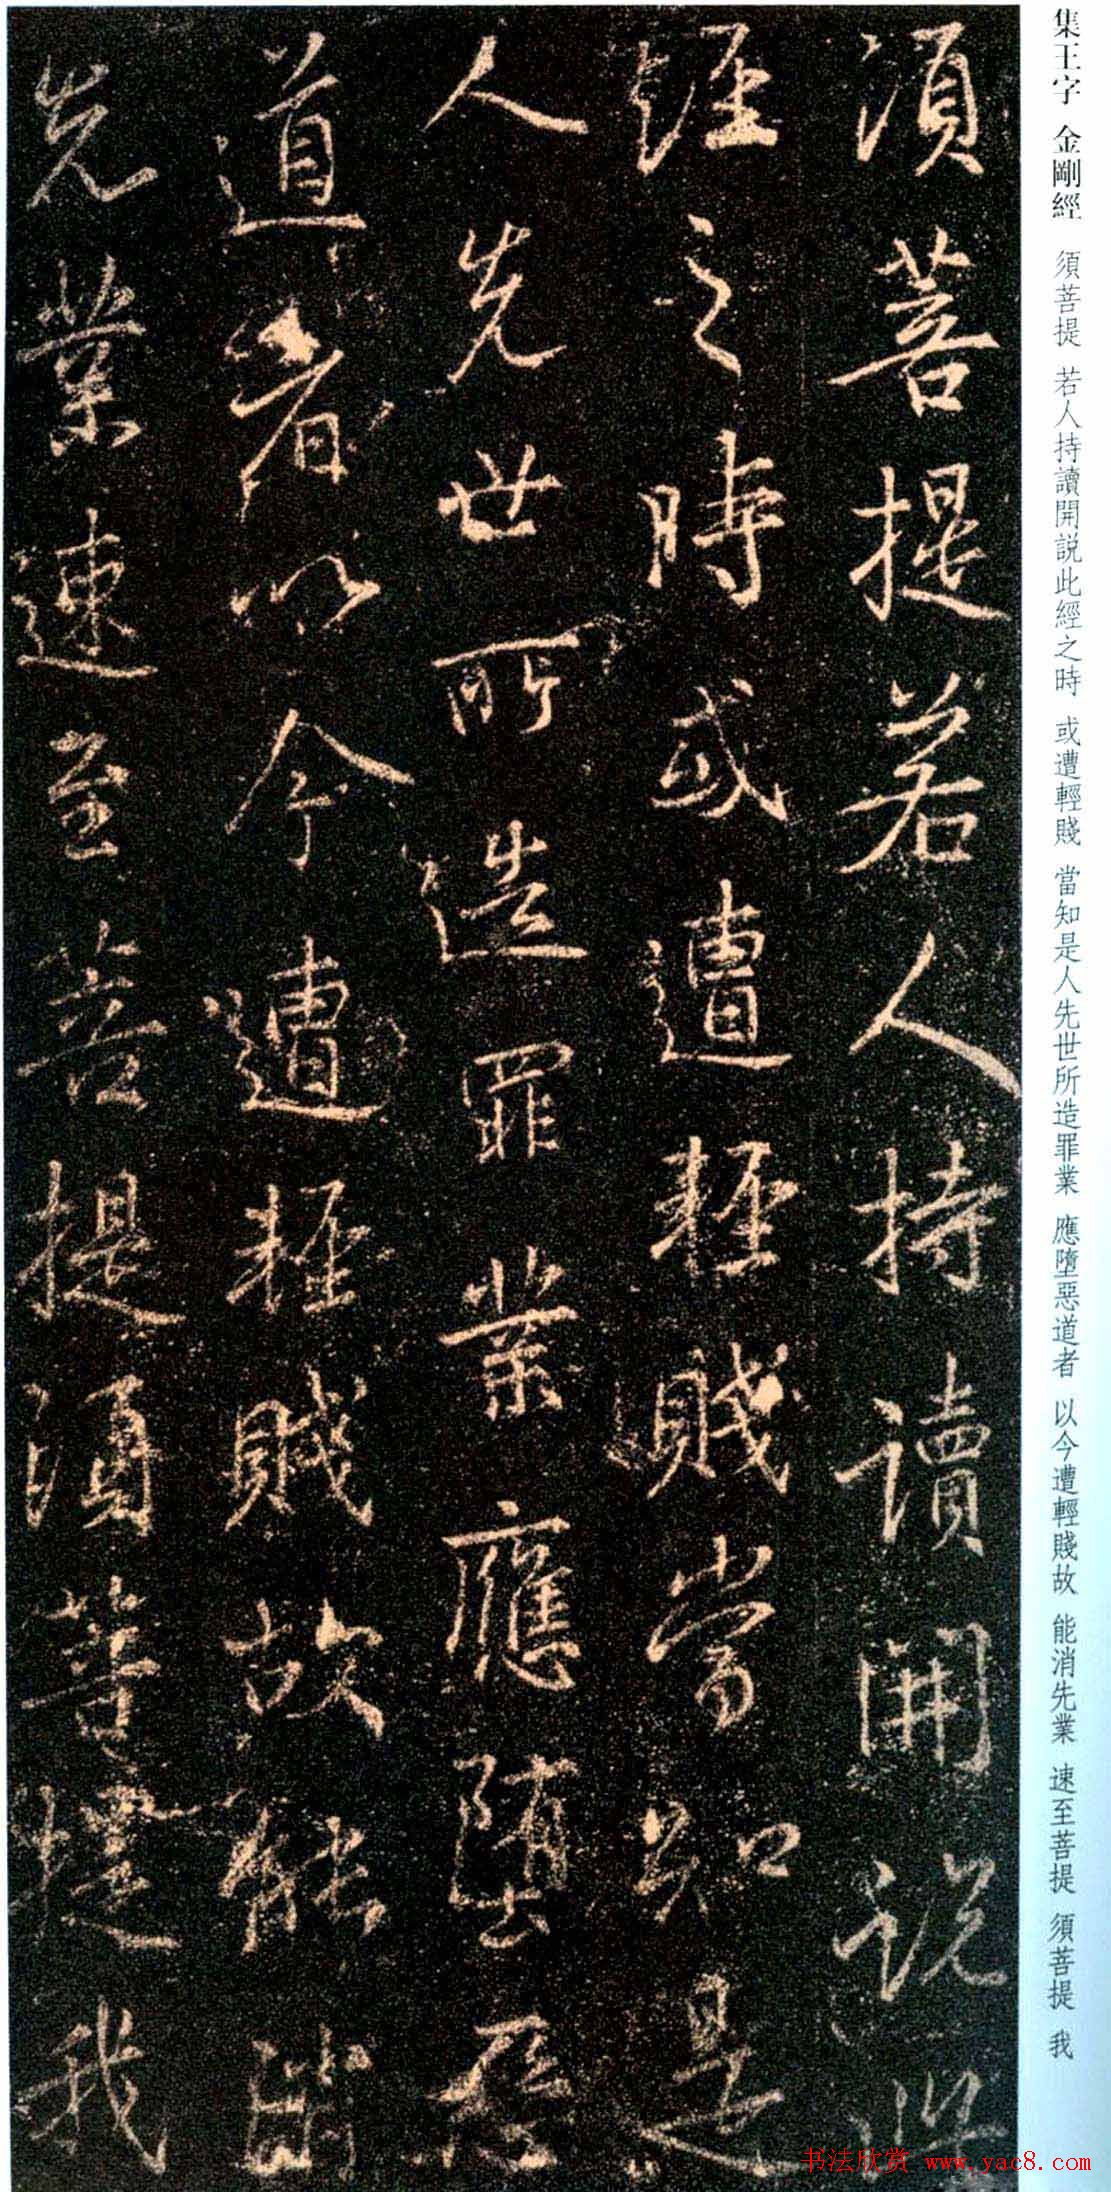 集王字 金剛經 須菩提 若人持讀開説此經之時 或遭輕賤 當知是人先世所造罪業 應墮惡道者 以今遭輕賤故 能消先業 速至菩提 須菩提 我
須菩提若人持讀開説此
經之時或遭輕賤當知是
人先世所造罪業應墮惡
道者以今遭輕賤故能消
先業速至菩提須菩提我
书法欣赏 www.yac8.com